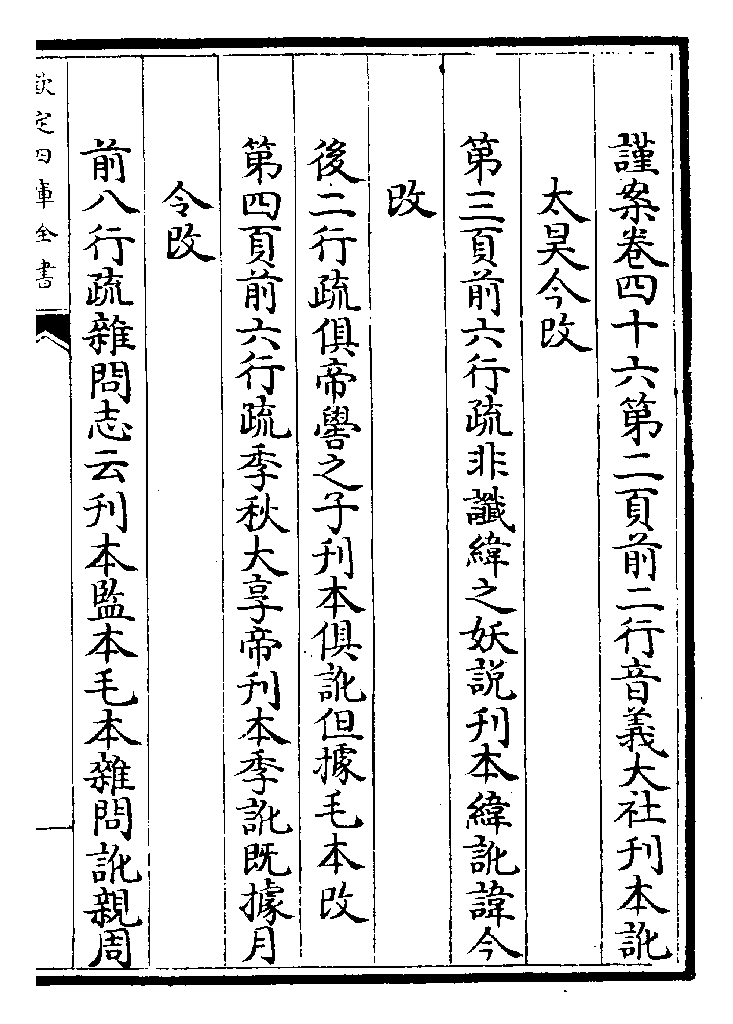 謹案卷四十六第二頁前二行音義大社刊本訛
太昊今改
第三頁前六行疏非讖緯之妖説刊本緯訛諱今
改
後二行疏俱帝嚳之子刊本俱訛但據毛本改
第四頁前六行疏季秋大享帝刊本季訛既據月
令改
前八行疏雜問志云刊本監本毛本雜問訛親周
欽定四庫全書